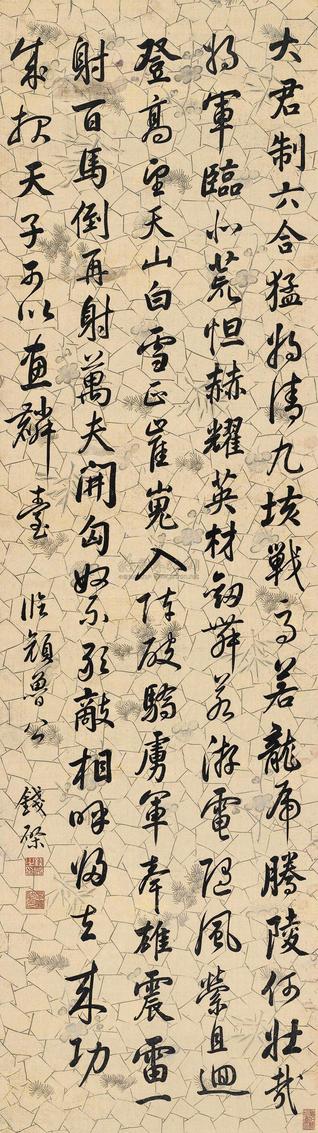 大君制六合猛将清九垓戰馬若龍虎騰陵何壯哉
将軍臨北荒怛赫耀英材劒舞若游電隨風縈且迴
登高望天山白雪正崔嵬入陣破驕虜軍雄震雷一
射百馬倒再射萬夫開匈奴不敢敵相呼歸去来功
成報天子可以畫麟臺
臨顏魯公
錢棨